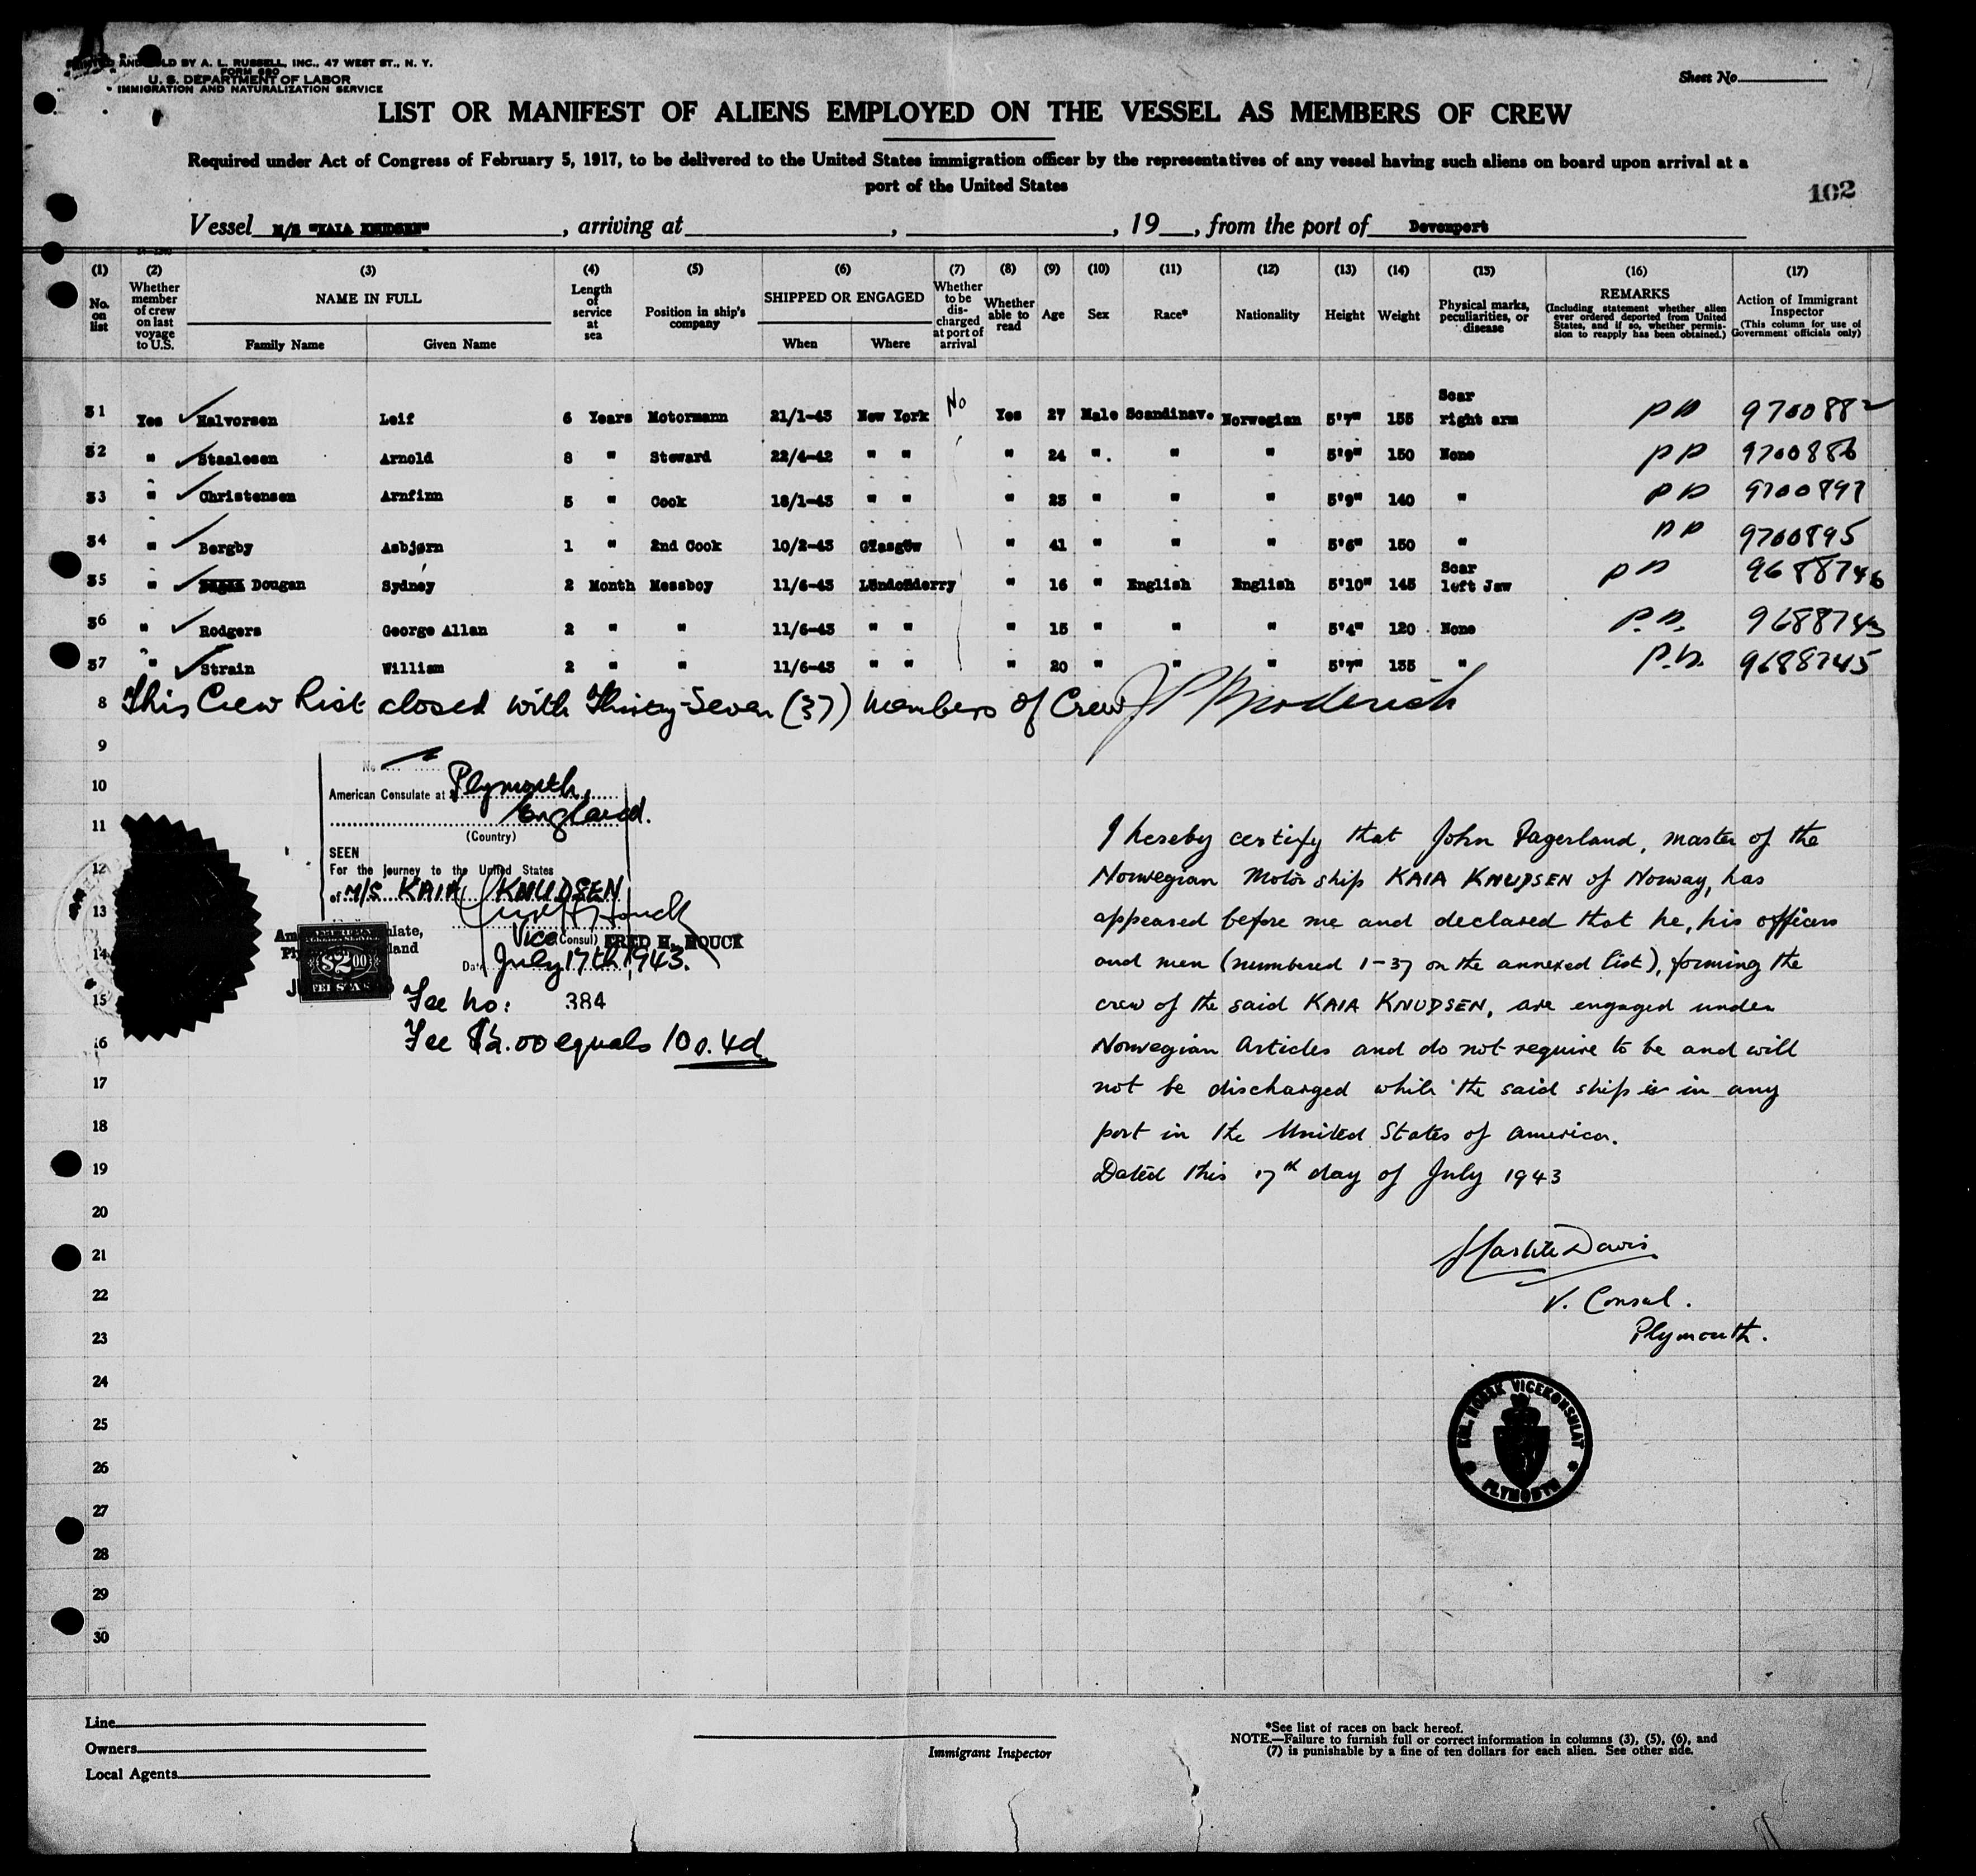 PRINTED AND SOLD BY A. L. RUSSELL, INC., 47 WEST ST., N. Y.
FORM 680
U. S. DEPARTMENT OF LABOR
IMMIGRATION AND NATURALIZATION SERVICE
Sheet No.
LIST OR MANIFEST OF ALIENS EMPLOYED ON THE VESSEL AS MEMBERS OF CREW
Required under Act of Congress of February 5, 1917, to be delivered to the United States immigration officer by the representatives of any vessel having such aliens on board upon arrival at a
port of the United States
102
Vessel M/S "KAIA KNUDSEN", arriving at , , 19 , from the port of Devonport
(1) No. on list
(2) Whether member of crew on last voyage to U.S.
(3) NAME IN FULL Family Name Given Name
(4) Length of service at sea
(5) Position in ship's company
(6) SHIPPED OR ENGAGED When Where
(7) Whether to be discharged at port of arrival
(8) Whether able to read
(9) Age
(10) Sex
(11) Race*
(12) Nationality
(13) Height
(14) Weight
(15) Physical marks, peculiarities, or disease
(16) REMARKS (Including statement whether alien ever ordered deported from United States, and if so, whether permission to reapply has been obtained.)
(17) Action of Immigrant Inspector (This column for use of Government officials only)
31 Yes Halvorsen Leif 6 Years Motormann 21/1-43 New York No Yes 27 Male Scandinav. Norwegian 5'7" 155 Scar right arm PP 9700882
32 " Staalesen Arnold 8 " Steward 22/4-42 " " " 24 " " " 5'9" 150 None PP 9700886
33 " Christensen Arnfinn 5 " Cook 18/1-43 " " " 23 " " " 5'9" 140 " PP 9700897
34 " Bergby Asbjørn 1 " 2nd Cook 10/2-43 Glasgow " 41 " " " 5'6" 150 " PP 9700895
35 " Dougan Sydney 2 Month Messboy 11/6-43 Londonderry " 16 " English English 5'10" 145 Scar left Jaw PP 9688746
36 " Rodgers George Allan 2 " " 11/6-43 " " " 15 " " " 5'4" 120 None P.P. 9688743
37 " Strain William 2 " " 11/6-43 " " " 20 " " " 5'7" 135 " P.P. 9688745
8 This Crew List closed with Thirty-Seven (37) members of Crew
9
10
11
12
13
14
15
16
17
18
19
20
21
22
23
24
25
26
27
28
29
30
No
American Consulate at Plymouth,
England.
(Country)
SEEN
For the journey to the United States
of M/S KAIA KNUDSEN
Vice Consul) FRED H. HOUCK
Date July 17th, 1943.
$2.00
Fee No: 384
Fee $2.00 equals 10s. 4d
I hereby certify that John Fagerland, master of the
Norwegian Motor ship KAIA KNUDSEN of Norway, has
appeared before me and declared that he, his officers
and men (numbered 1-37 on the annexed list), forming the
crew of the said KAIA KNUDSEN, are engaged under
Norwegian Articles and do not require to be and will
not be discharged while the said ship is in any
port in the United States of America.
Dated this 17th day of July 1943
Davis
V. Consul.
Plymouth.
KGL. NORSK VICEKONSULAT
PLYMOUTH
Line
Owners
Local Agents
Immigrant Inspector
*See list of races on back hereof.
NOTE.—Failure to furnish full or correct information in columns (3), (5), (6), and
(7) is punishable by a fine of ten dollars for each alien. See other side.